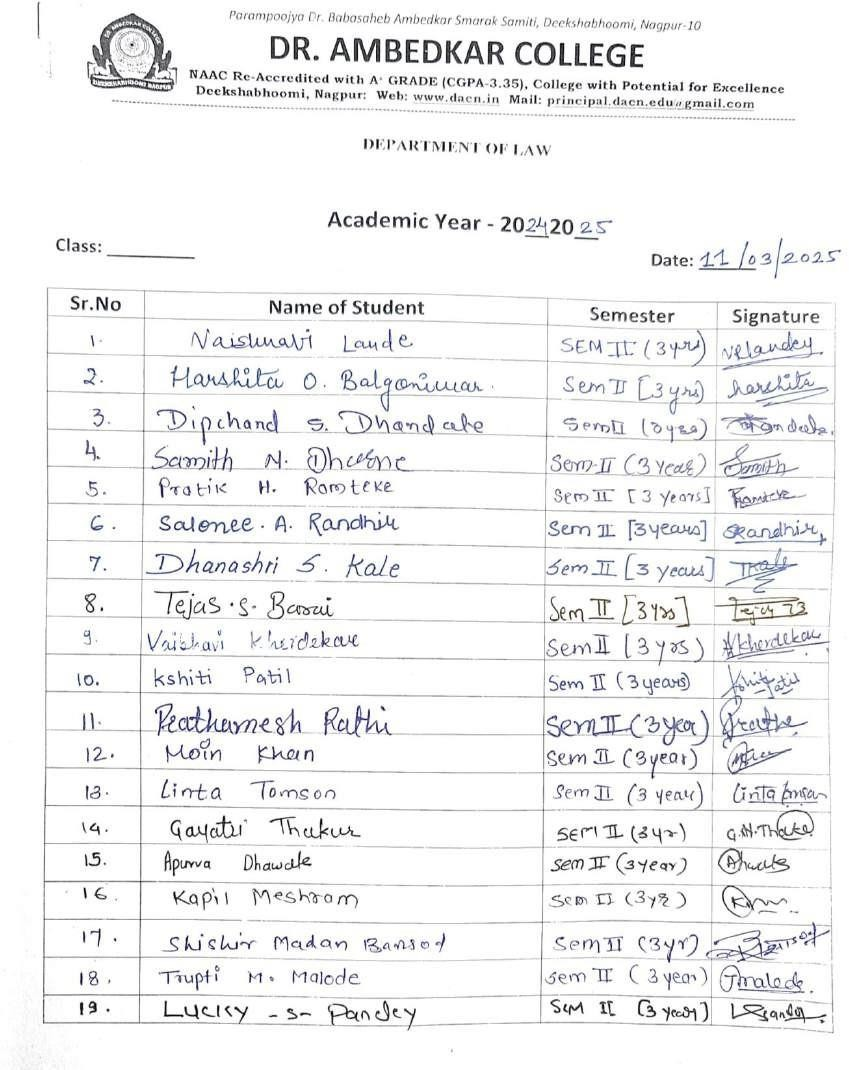 Parampoojya Dr. Babasaheb Ambedkar Smarak Samiti, Deekshabhoomi, Nagpur-10
DR. AMBEDKAR COLLEGE
DR. AMBEDKAR COLLEGE
DEEKSHABHOOMI NAGPUR
NAAC Re-Accredited with A+ GRADE (CGPA-3.35), College with Potential for Excellence
Deekshabhoomi, Nagpur: Web: www.dacn.in Mail: principal.dacn.edu@gmail.com
DEPARTMENT OF LAW
Academic Year - 2024 2025
Class:
Date: 11/03/2025
Sr.No Name of Student Semester Signature
1. Vaishnavi Lande SEM II (3 yrs) VRLandey
2. Harshita O. Balgoniwar. Sem II [3 yrs) harshita
3. Dipchand S. Dhandale Sem II (3 yrs)
4. Samith N. Sem-II (3 Year) Samith
5. Pratik H. Ramteke Sem II [3 Years] Ramteke
6. Salonee. A. Randhir Sem II [3 years] SRandhir
7. Dhanashri S. Kale Sem II [3 years]
8. Tejas.S. Barai Sem II [3 Yrs]
9. Vaishavi Kherdekar Sem II [3 yrs) Kherdekar
10. Kshiti Patil Sem II (3 years) Kshiti Patil
11. Prathamesh Rathi Sem II (3 year)
12. Moin Khan Sem II (3 year)
13. Linta Tomson Sem II (3 year) Linta Tomson
14. Gayatri Thakur SEM II (3 yr) G.N.Thakur
15. Apurva Dhawale Sem II (3 year)
16. Kapil Meshram Sem II (3 yr)
17. Shishir Madan Bansod Sem II (3 yr)
18. Trupti M. Malode Sem II (3 year) Tmalode.
19. Lucky -S- Pandey Sem II [3 year]